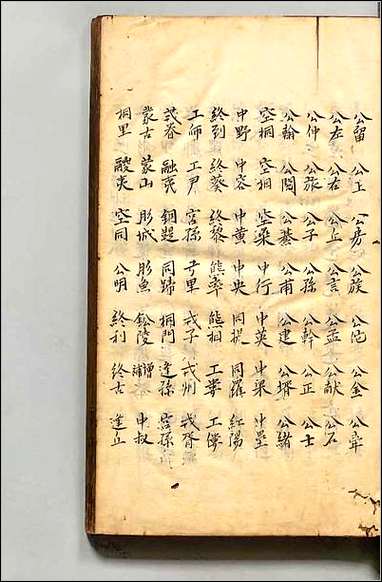 公留 公玉 公房 公族 公沱 公金 公牽
公左 公右 公丘 公言 公孟 公献 公石
公仲 公旅 公子 公孫 公幹 公正 公士
公翰 公閱 公綦 公甫 公建 公壻 公緒
空桐 空相 空桑 中行 中英 中梁 中壘
中野 中容 中黄 中央 同提 同羅 紅陽
終到 終葵 終黎 熊率 熊相 工婁 工僂
工師 工尹 宫孫 弓里 戎子 戎州 戎胥
融夷 銅鞮 同蹄 桐門 逢孫 宫孫
蒙古 蒙山 肜城 肜魚 陵 增補 申叔
桐里 夷 空同 公明 終利 終古 逢丘